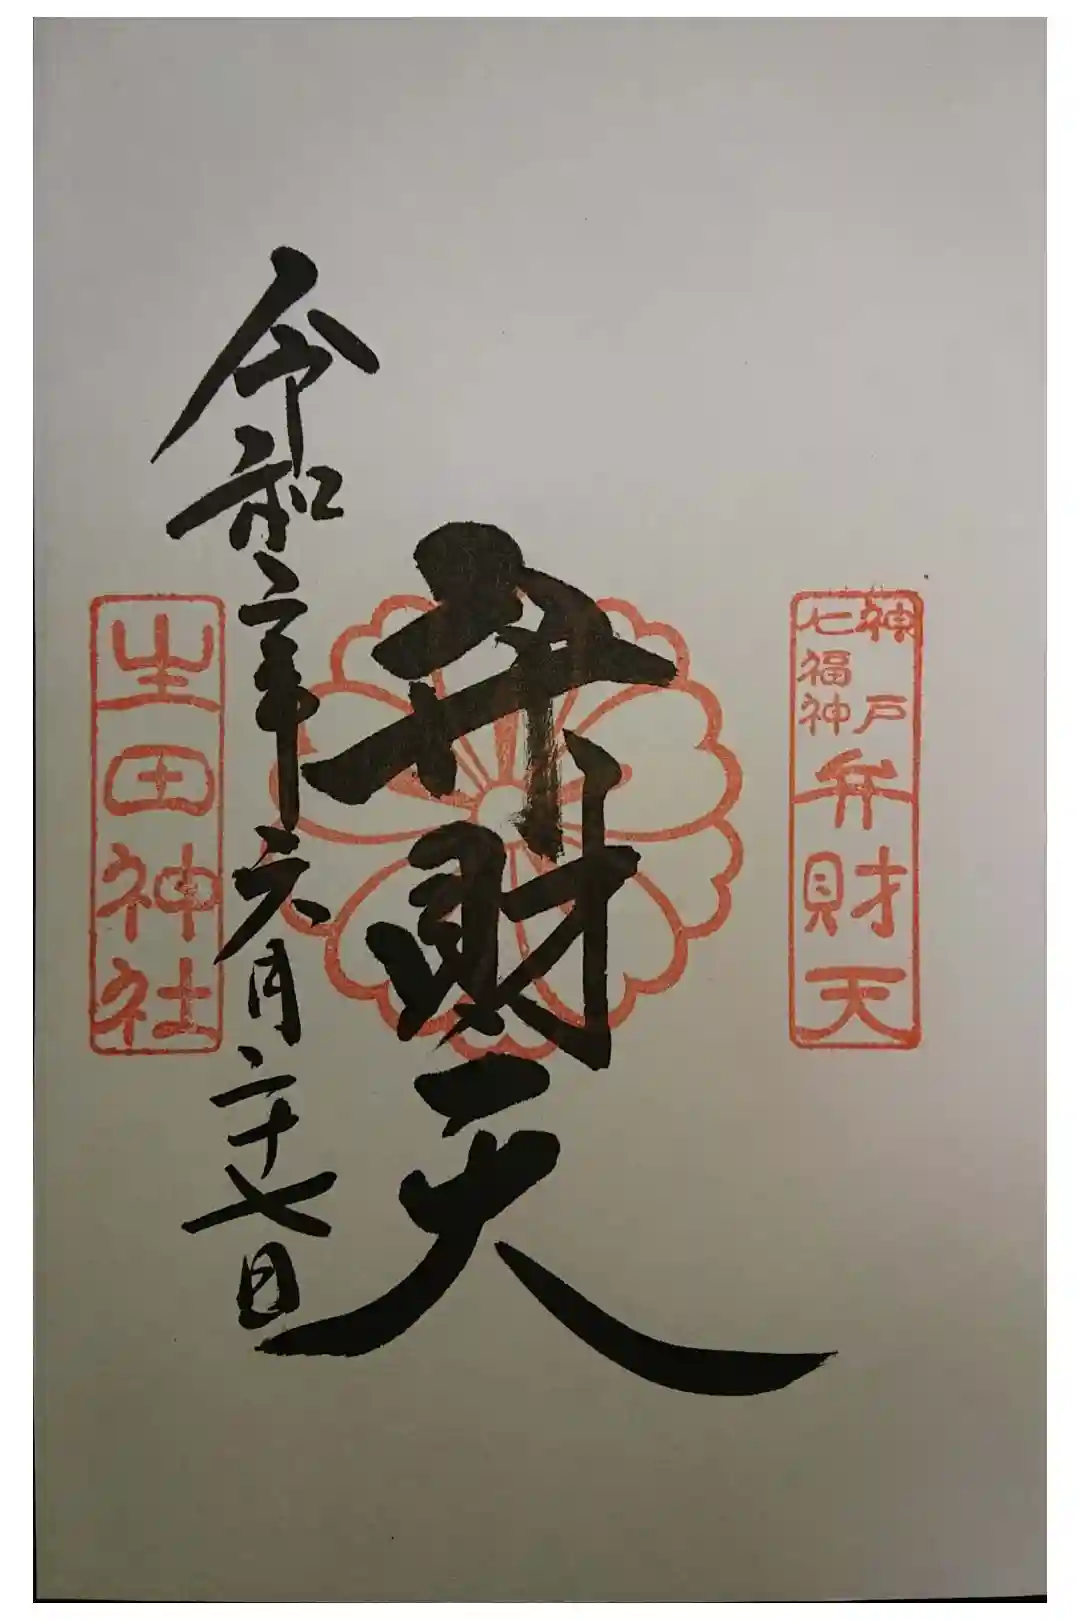 神戸
七福神
弁財天
弁財天
令和二年六月二十七日
生田神社